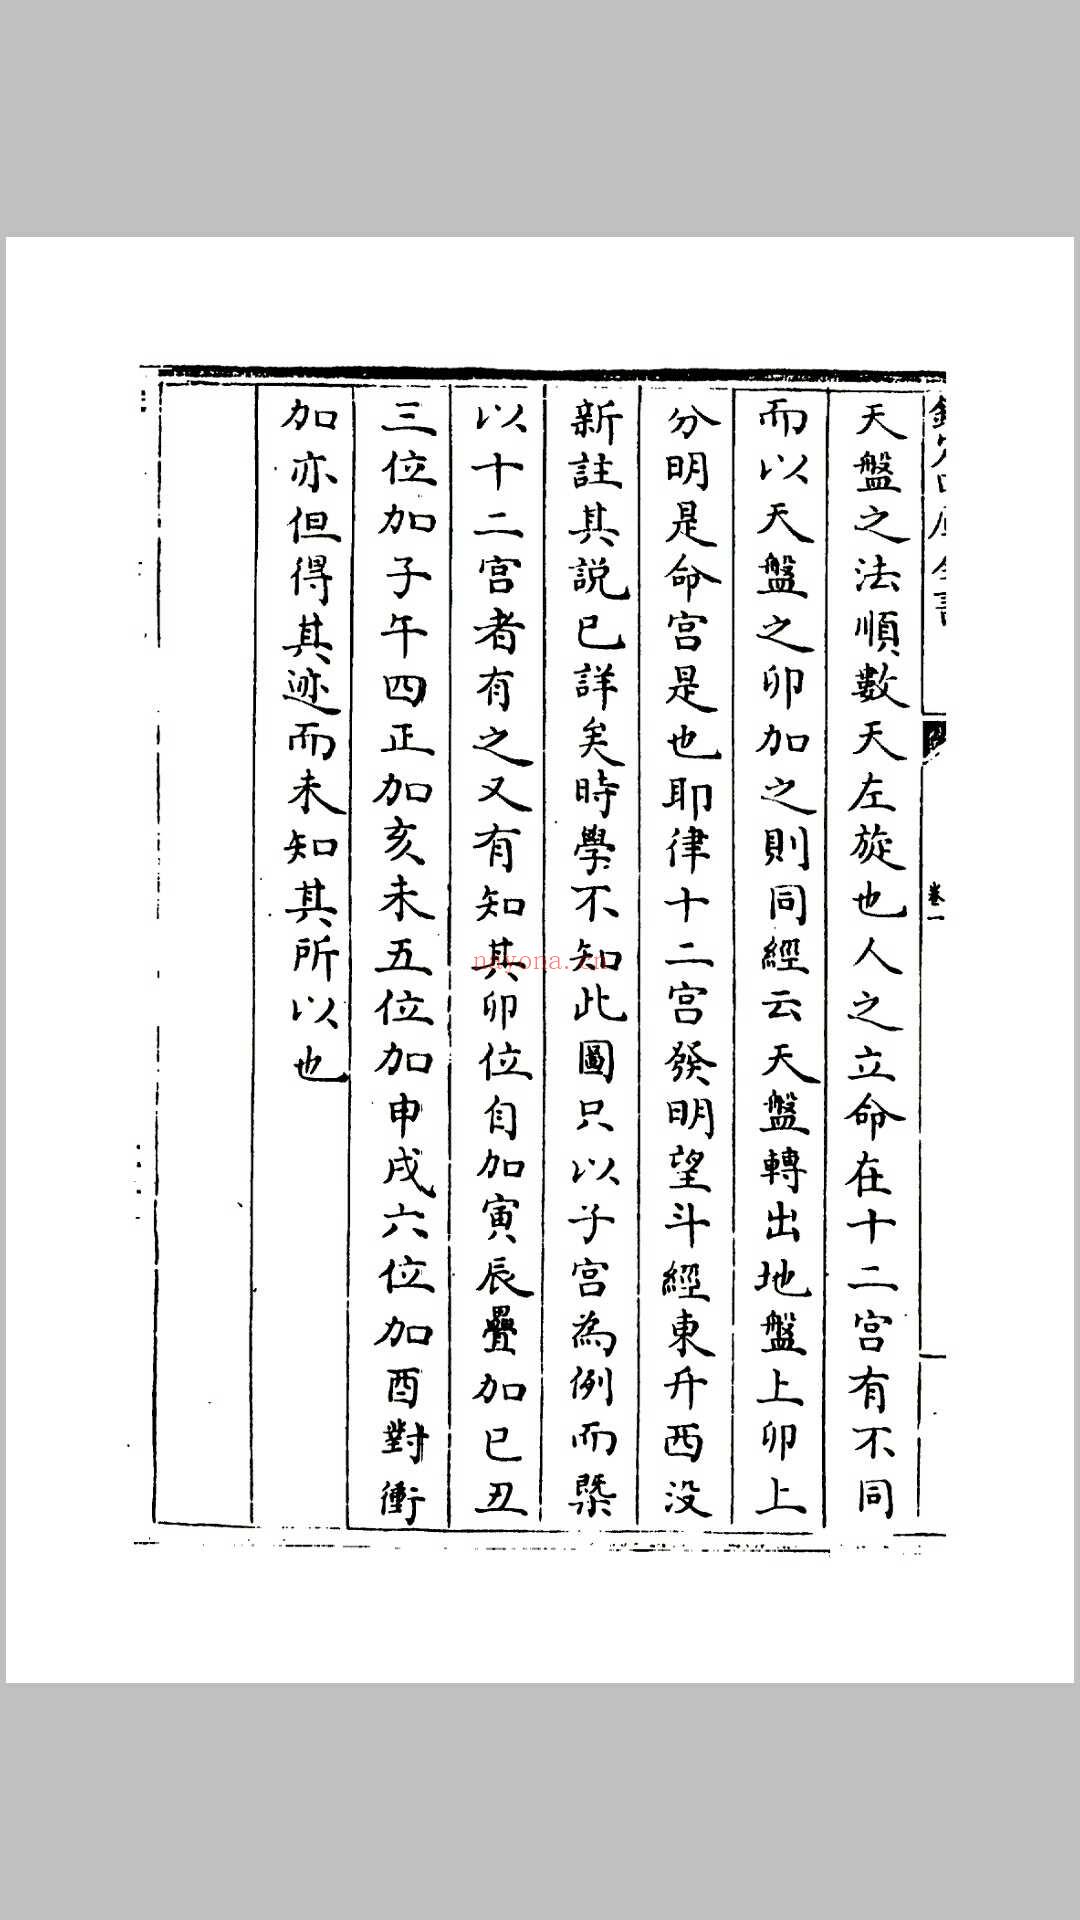 天盤之法順數天左旋也人之立命在十二宫有不同
而以天盤之卯加之則同經云天盤轉出地盤上卯上
分明是命宫是也耶律十二宫發明望斗經東升西没
新註其説已詳矣時學不知此圖只以子宫為例而槩
以十二宫者有之又有知其卯位自加寅辰疊加已丑
三位加子午四正加亥未五位加申戌六位加酉對衝
加亦但得其迹而未知其所以也
卷一
nayona.cn